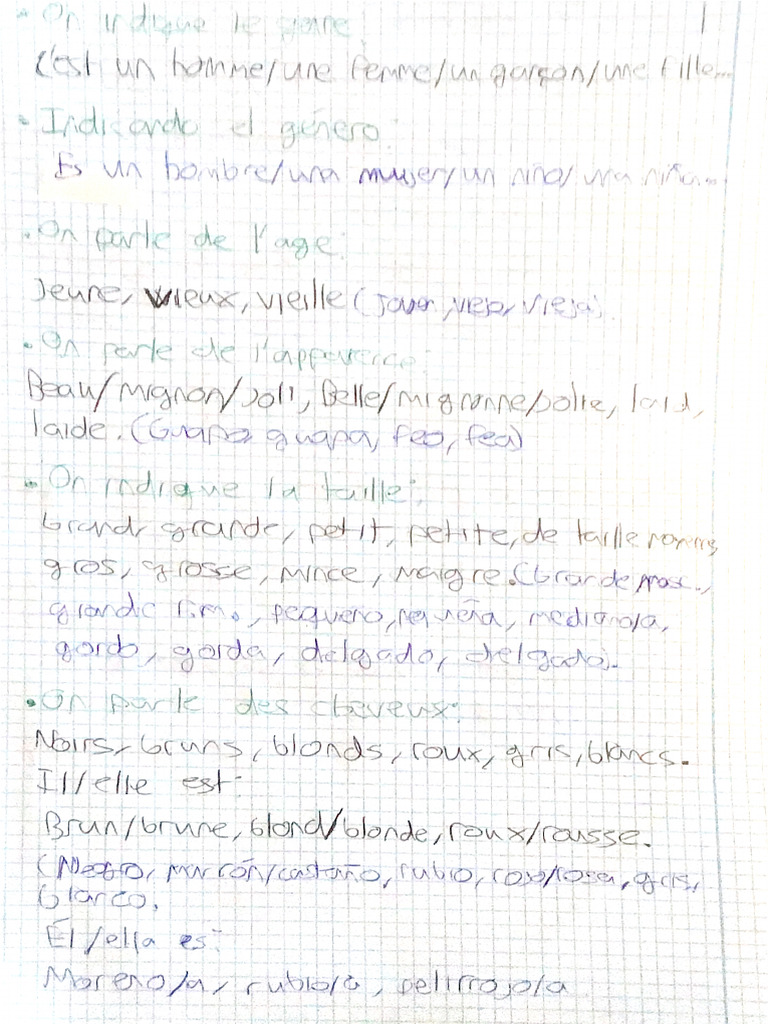 • On indique le genre
1
C'est un homme/une femme/un garçon/une fille...
• Indicando el género:
Es un hombre/una mujer/un niño/una niña...
• On parle de l'age:
Jeune, vieux, vieille (joven, viejo, vieja).
• On parle de l'apparence:
Beau/mignon/joli, Belle/mignonne/jolie, laid,
laide. (Guapo, guapa, feo, fea)
• On indique la taille:
Grand, grande, petit, petite, de taille
gros, grosse, mince, maigre. (Grande masc.,
grande fem., pequeño, pequeña, mediano/a,
gordo, gorda, delgado, delgada).
• On parle des cheveux:
Noirs, bruns, blonds, roux, gris, blancs.
Il/elle est:
Brun/brune, blond/blonde, roux/rousse.
(Negro, marrón/castaño, rubio, rojo/rosa, gris,
blanco.
Él/ella es:
Moreno/a, rubio/a, pelirrojo/a